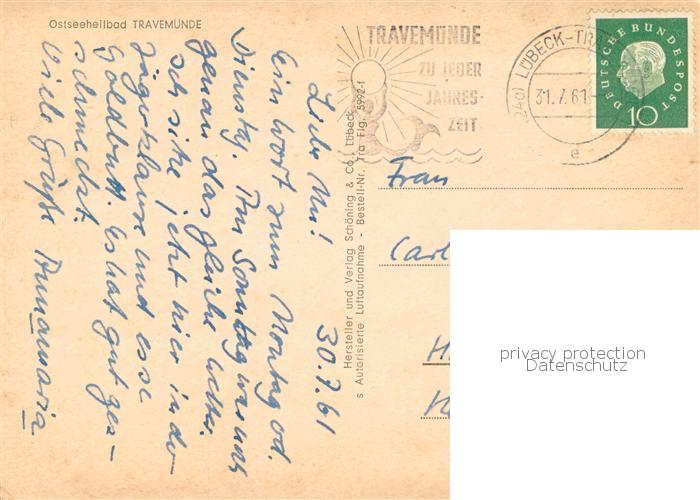 Ostseeheilbad TRAVEMÜNDE
TRAVEMÜNDE
ZU JEDER
JAHRES-
ZEIT
LÜBECK-TRA
31.7.61
e
DEUTSCHE BUNDESPOST
10
Hersteller und Verlag Schöning & Co., Lübeck
s Autorisierte Luftaufnahme - Bestell-Nr. Tra Flg. 5992-f
30.7.61
Liebe Mi!
Ein Wort zum Montag od.
Dienstag. Am Sonntag war uns
genau das gleiche Wetter.
Ich sitze jetzt hier in der
Jägerklause und esse
Goldbutt. Es hat gut ges-
chmeckt.
Viele Grüße Annamaria
Frau
Carl
H
privacy protection
Datenschutz